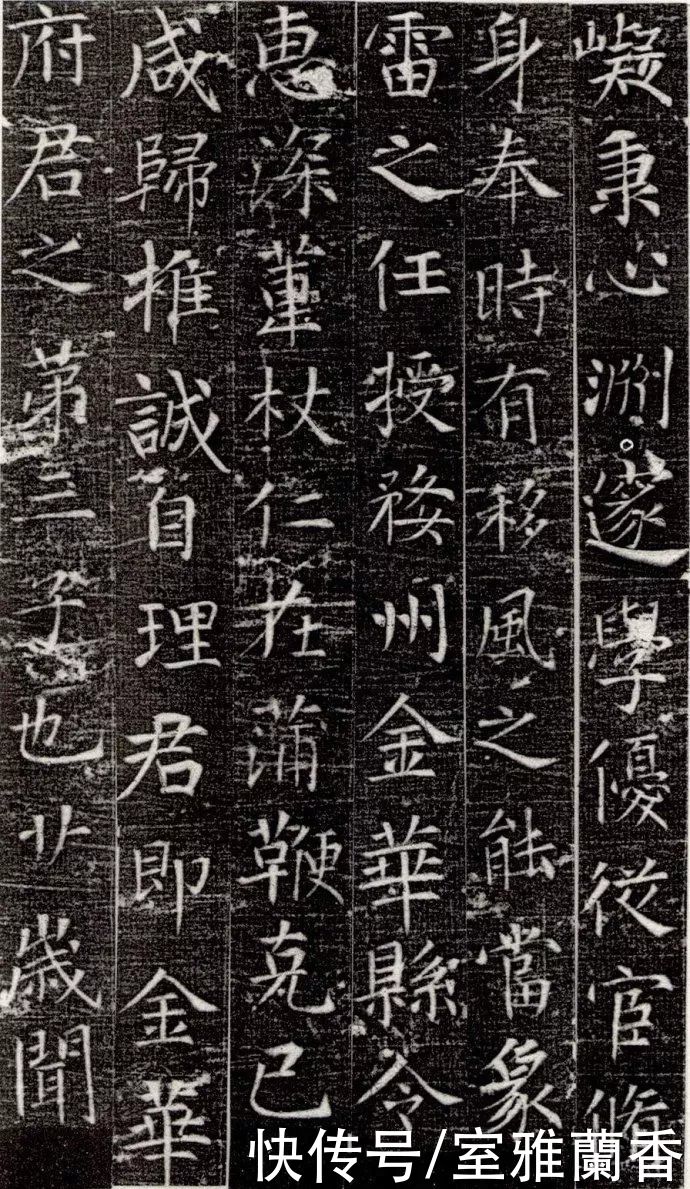 嶷秉心淵邃學優從官脩
身奉時有移風之能當象
雷之任授婺州金華縣令
惠深董杖仁在蒲鞭克己
咸歸推誠自理君即金華
府君之第三子也廿歲聞
快传号/室雅蘭香